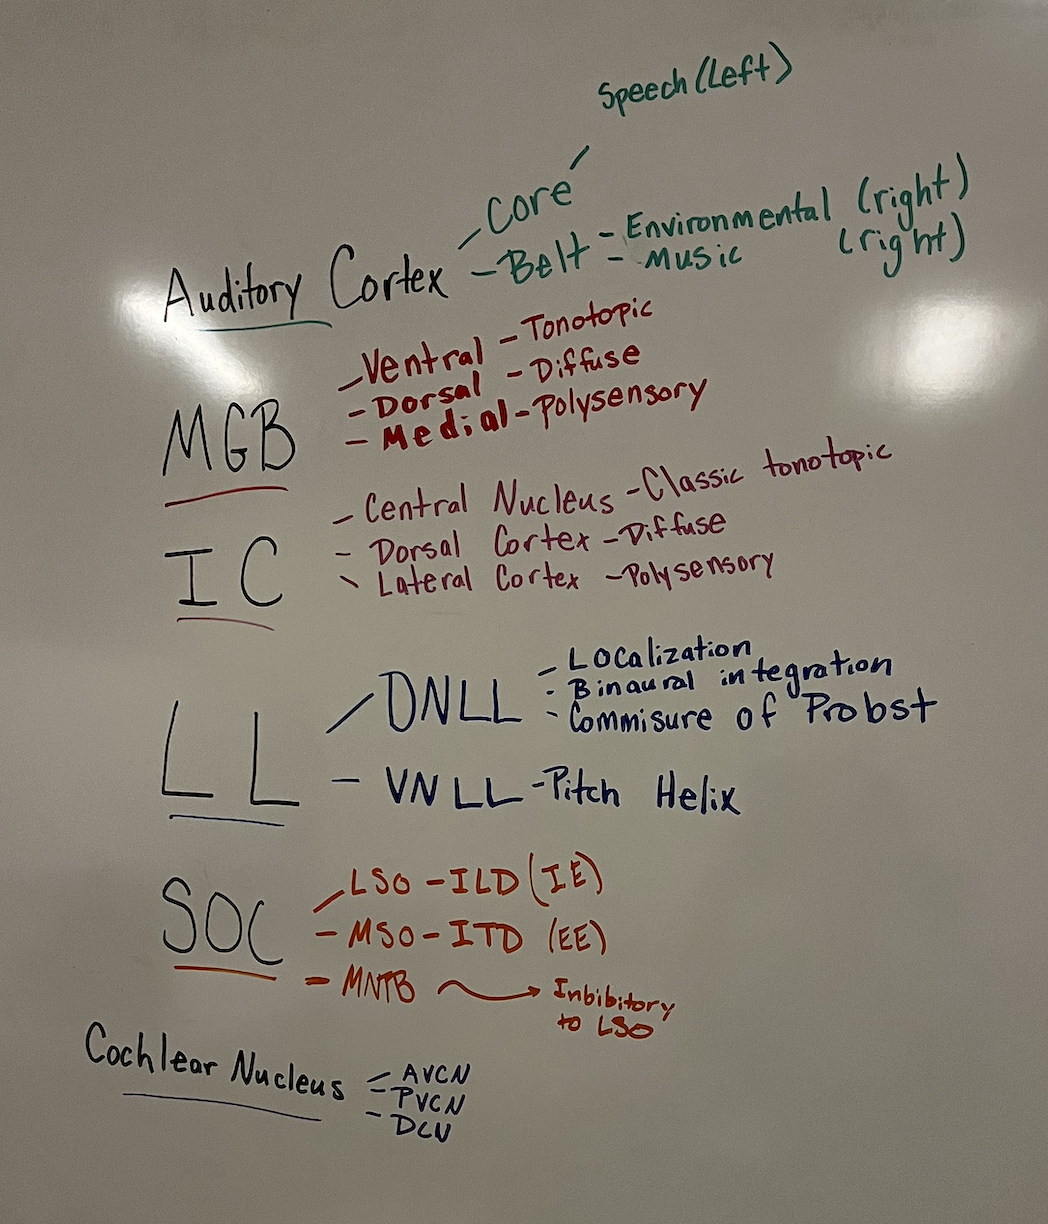 Speech (Left)
Core
Auditory Cortex - Belt - Environmental (right)
- Music (right)
Ventral - Tonotopic
- Dorsal - Diffuse
MGB - Medial - Polysensory
- Central Nucleus - Classic tonotopic
IC - Dorsal Cortex - Diffuse
- Lateral Cortex - Polysensory
- Localization
LL DNLL - Binaural integration
- Commisure of Probst
- VNLL - Pitch Helix
LSO - ILD (IE)
SOC - MSO - ITD (EE)
- MNTB → Inbibitory
to LSO
Cochlear Nucleus - AVCN
- PVCN
- DCN